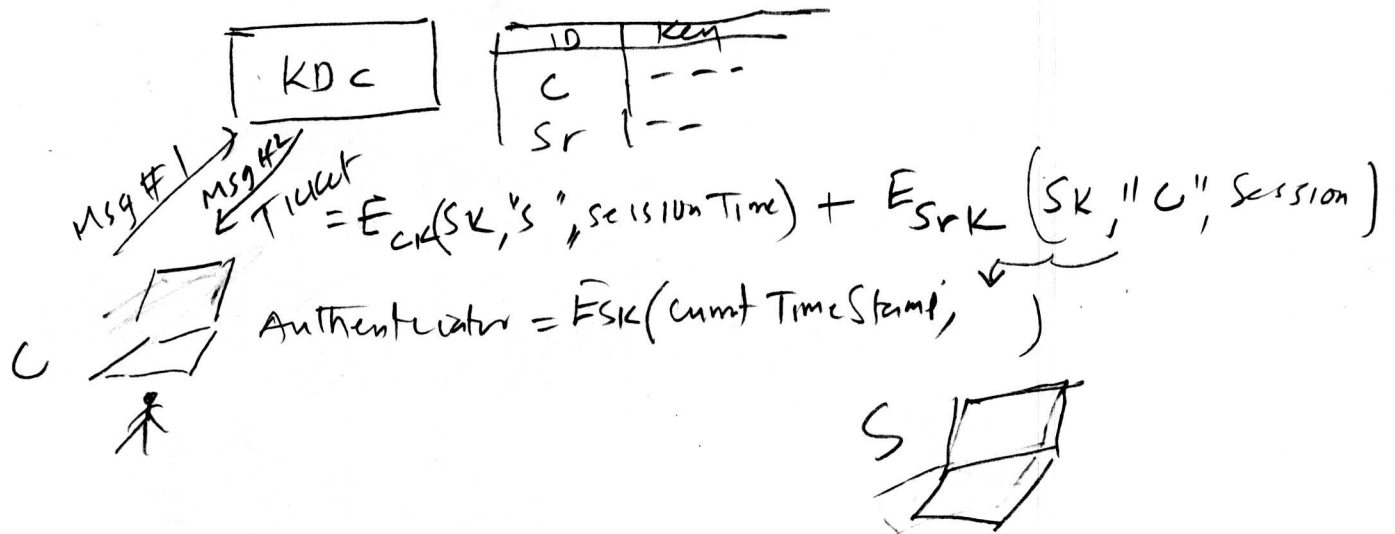 KDC
ID Key
C - - -
Sr - -
Msg #1
Msg #2
Ticket = E_CK(SK, "S", session Time) + E_SrK (SK, "C", Session)
Authenticator = ESK(Current TimeStamp, )
C
S